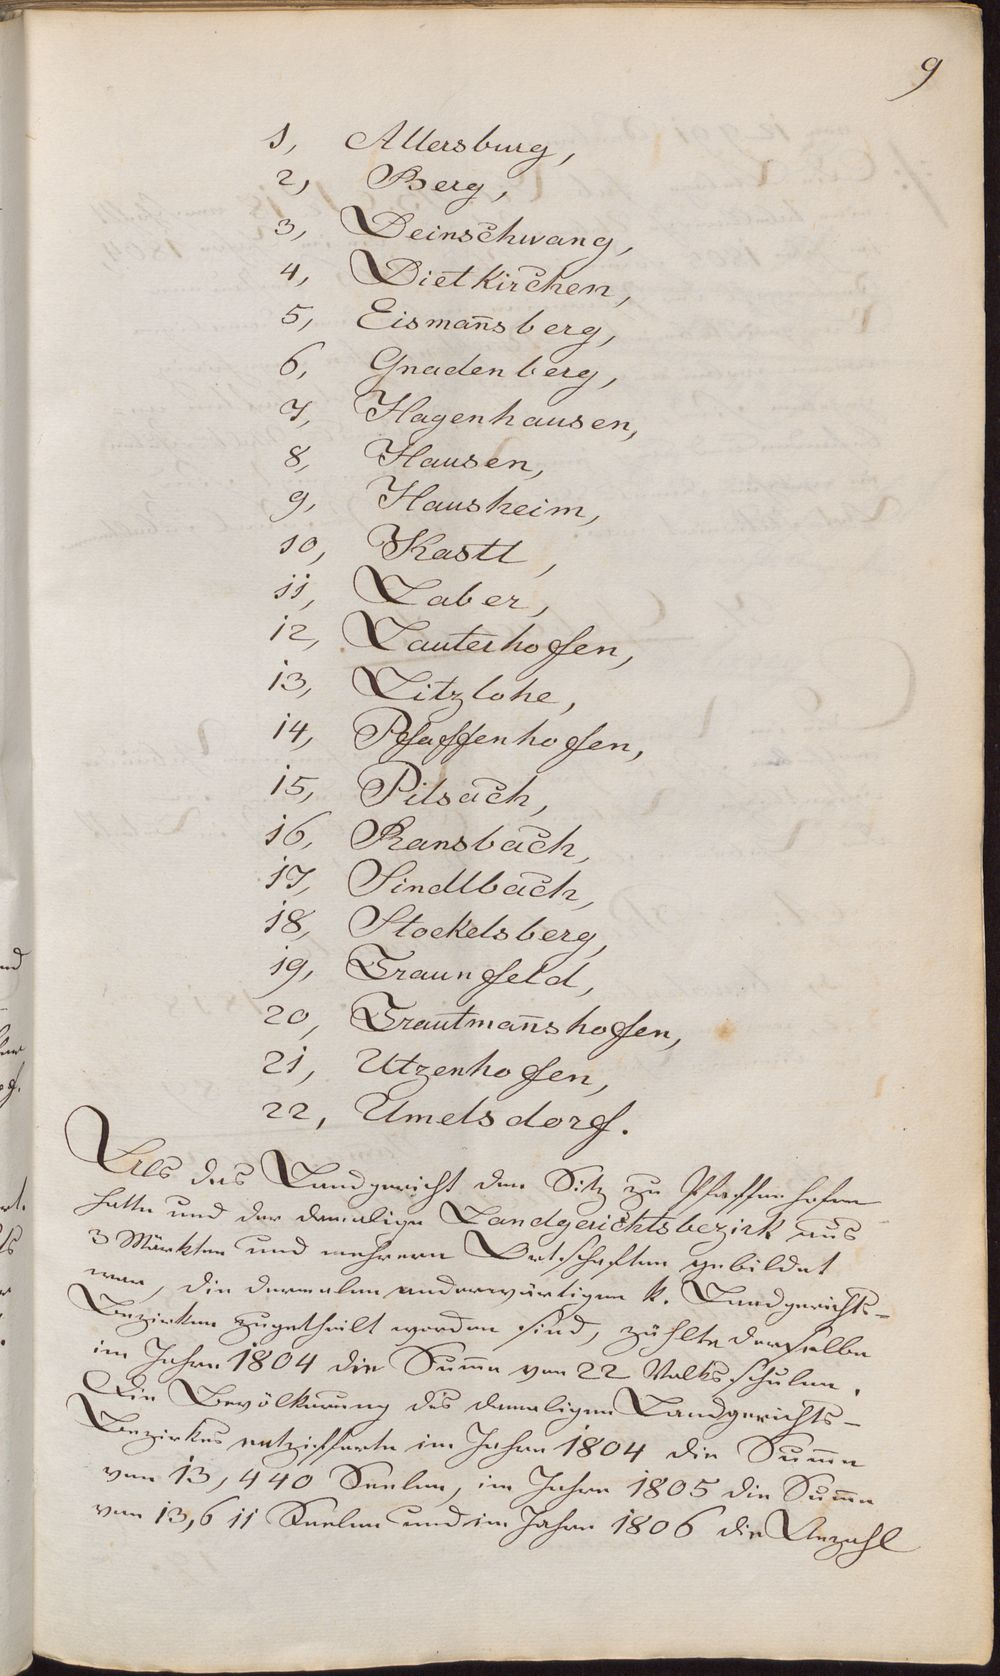 9
1, Allersburg,
2, Berg,
3, Deinschwang,
4, Dietkirchen,
5, Eisman̄sberg,
6, Gnadenberg,
7, Hagenhausen,
8, Hausen,
9, Hausheim,
10, Kastl,
11, Laber,
12, Lauterhofen,
13, Litzlohe,
14, Pfaffenhofen,
15, Pilsach,
16, Ransbach,
17, Sindlbach,
18, Stoekelsberg,
19, Traunfeld,
20, Trautman̄shofen,
21, Utzenhofen,
22, Umelsdorf.
Als das Landgericht den Sitz zu Pfaffenhofen
hatte und der damalige Landgerichtsbezirk aus
3 Märkten und mehrern Ortschaften gebildet
war, die dermalen anderwärtigen k. Landgerichts-
Bezirken zugetheilt worden sind, zählte derselbe
im Jahre 1804 die Sum̄e von 22 Volksschulen.
Die Bevölkerung des damaligen Landgerichts-
Bezirkes entzifferte im Jahre 1804 die Sum̄e
von 13,440 Seelen, im Jahre 1805 die Sum̄e
von 13,611 Seelen und im Jahre 1806 die Anzahl